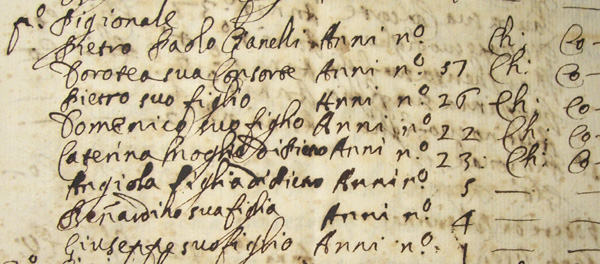 po. Pigionale
Pietro Paolo Gianelli Anni no. Ch: Co-
Dorotea sua Consorte Anni no. 57 Ch: Co-
Pietro suo figlio Anni no. 26 Ch: Co-
Domenico suo figlio Anni no. 22 Ch: Co-
Caterina moglie di Pietro Anni no. 23. Ch: Co-
Angiola figlia di Pietro Anni no. 5 —
Bernardino sua figlia Anni no. 4 —
Giuseppe suo figlio Anni no. 1 —